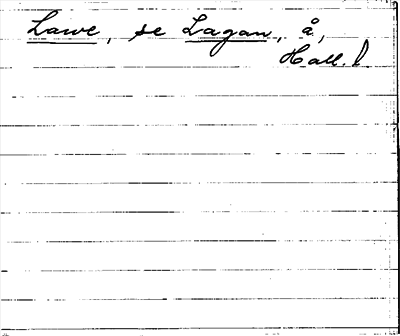 Lawe, se Lagan, å,
Hall. l